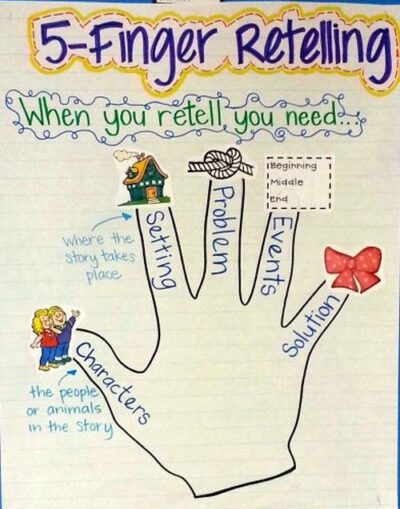 5-Finger Retelling
When you retell, you need...
Characters
the people
or animals
in the story
Setting
where the
story takes
place
Problem
Events
Beginning
Middle
End
Solution